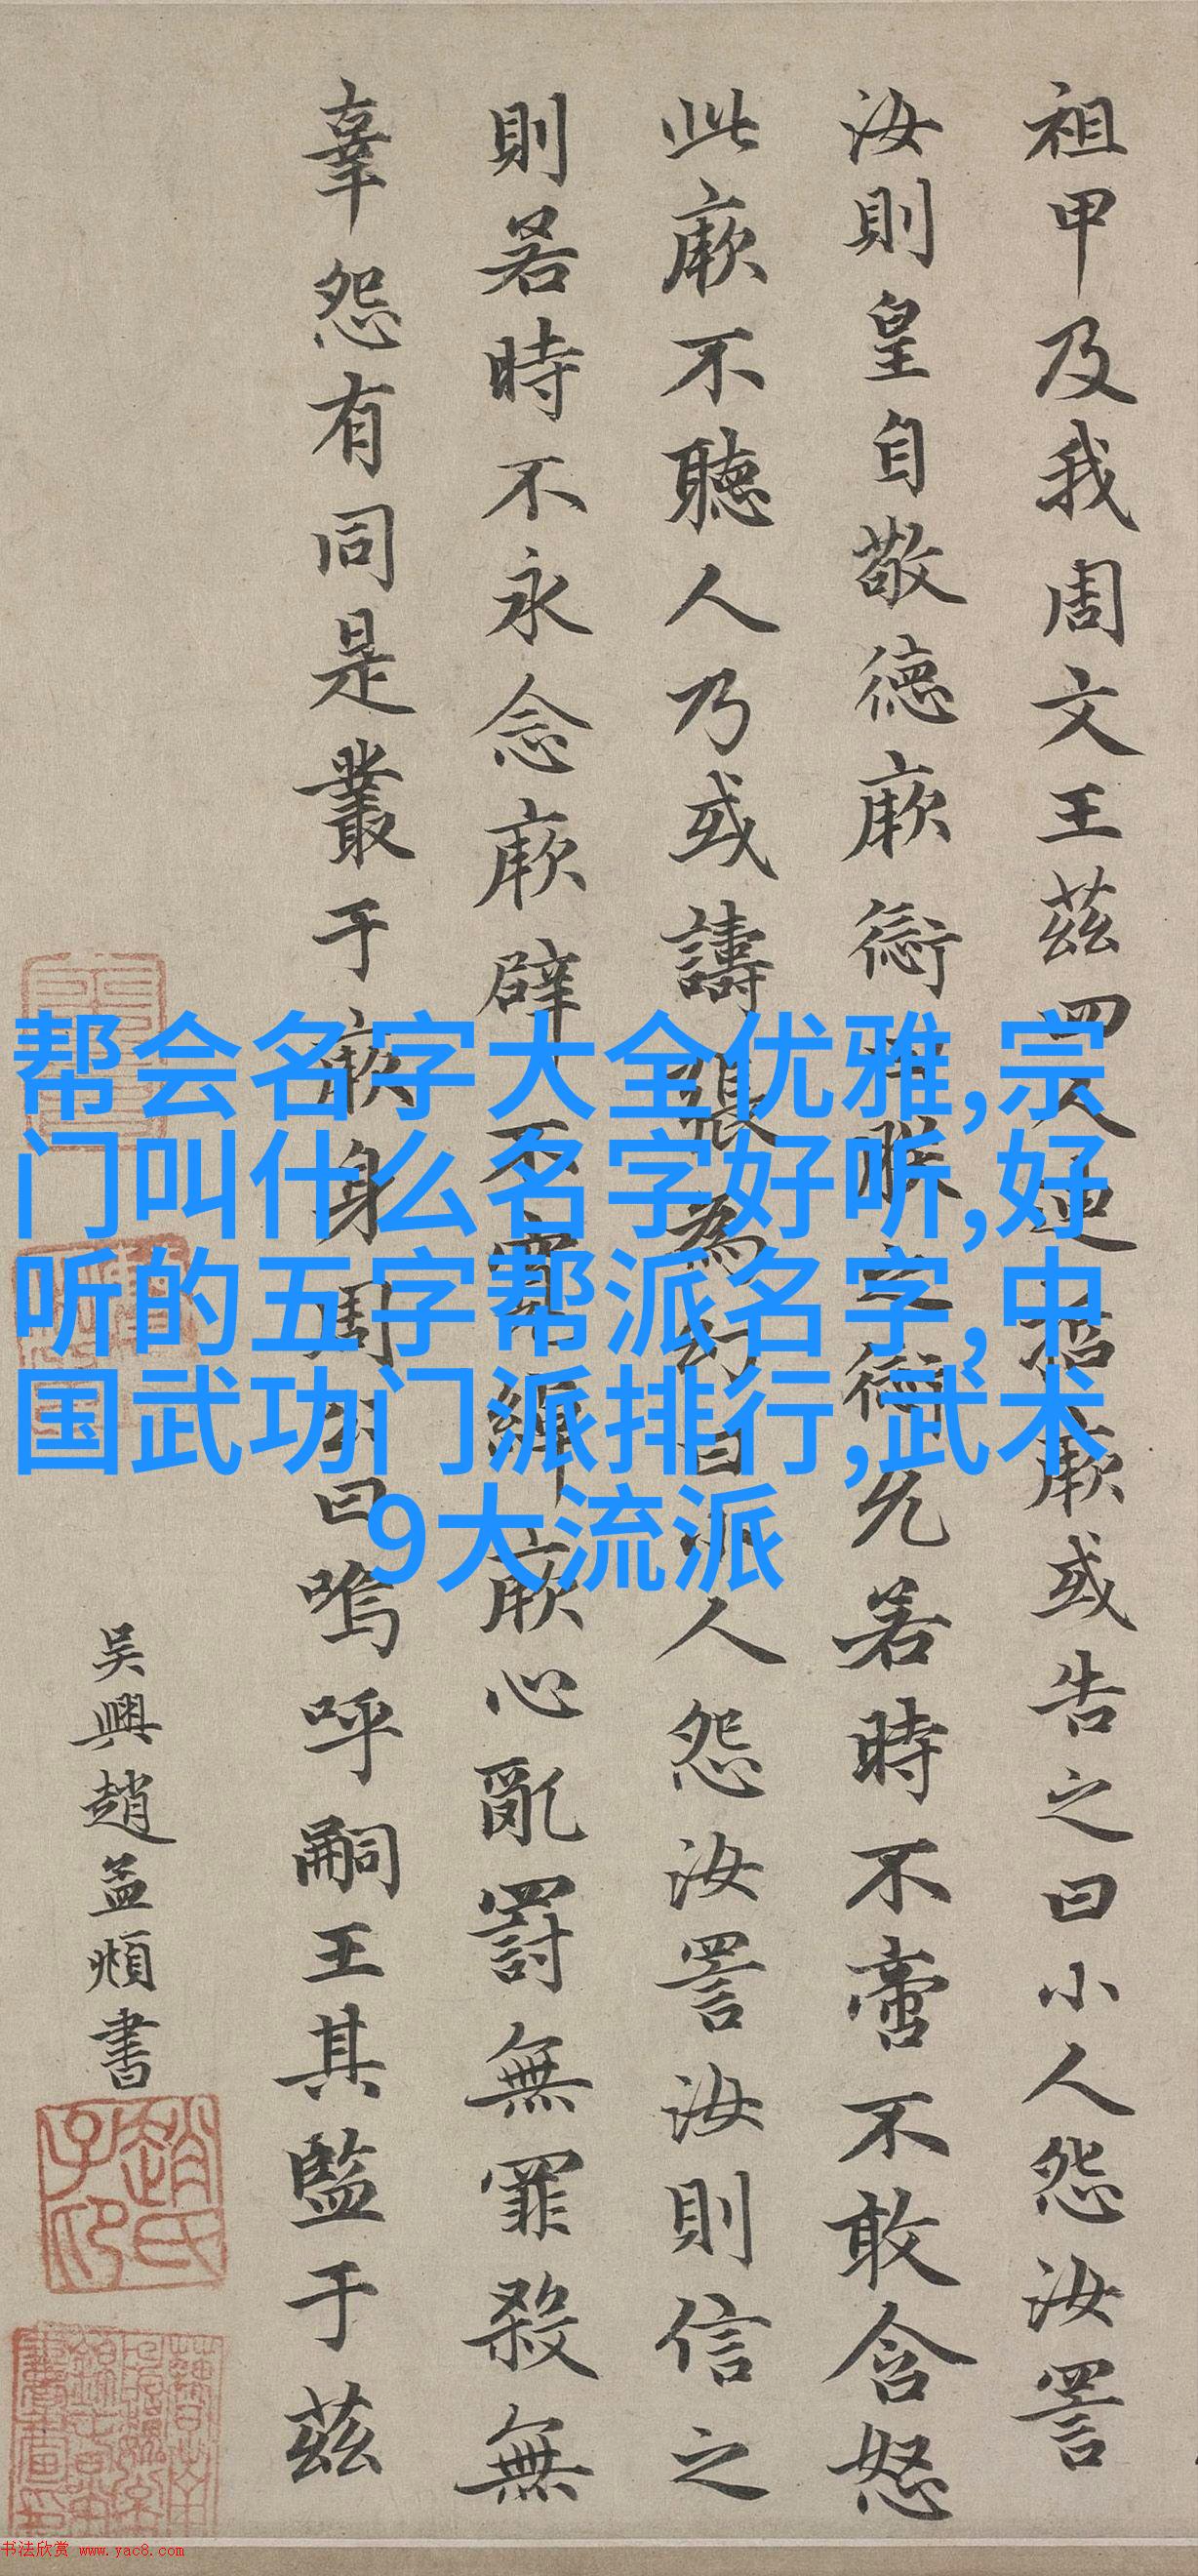 祖甲及我周文王茲四人迪哲厥或告之曰小人怨汝詈
汝則皇自敬德厥愆曰朕之愆允若時不啻不敢含怒
此厥不聽人乃或譸張為幻曰小人怨汝詈汝則信之
則若時不永念厥辟不寬綽厥心亂罰無罪殺無
辜怨有同是叢于厥身周公曰嗚呼嗣王其監于茲
吴興趙孟頫書
趙氏子印
帮会名字大全优雅,宗
门叫什么名字好听,好
听的五字帮派名字,中
国武功门派排行,武术
9大流派
书法欣赏 www.yac8.com